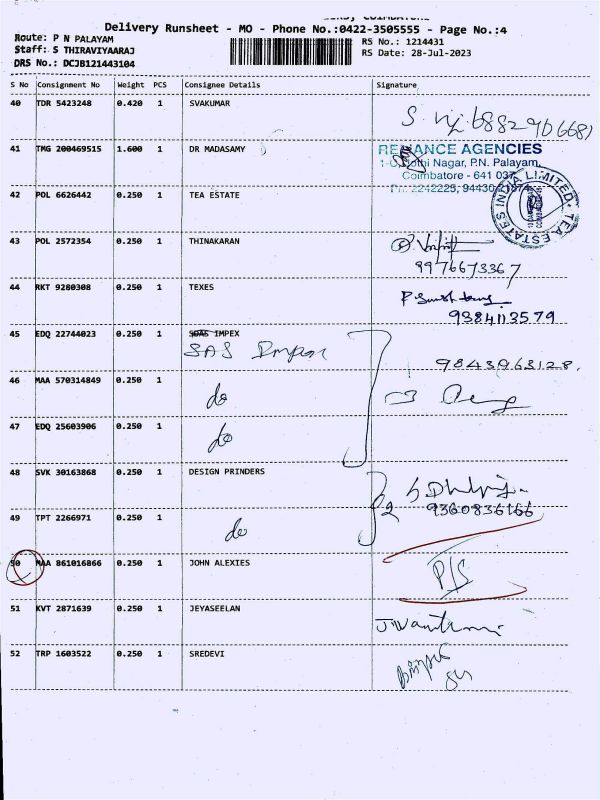 Delivery Runsheet - MO - Phone No.:0422-3505555 - Page No.:4
Route: P N PALAYAM
Staff: S THIRAVIYAARAJ
DRS No.: DCJB121443104
RS No.: 1214431
RS Date: 28-Jul-2023
S No Consignment No Weight PCS Consignee Details Signature
40 TDR 5423248 0.420 1 SVAKUMAR
41 TMG 200469515 1.600 1 DR MADASAMY
RELIANCE AGENCIES
Nagar, P.N. Palayam,
Coimbatore - 641 037
2242225, 94430
42 POL 6626442 0.250 1 TEA ESTATE
TEA ESTATES INDIA LIMITED
43 POL 2572354 0.250 1 THINAKARAN
9976673367
44 RKT 9280308 0.250 1 TEXES
9384113579
45 EDQ 22744023 0.250 1 SOAS IMPEX
SAS Impex
9843963128.
46 MAA 570314849 0.250 1 do
47 EDQ 25603906 0.250 1 do
48 SVK 30163868 0.250 1 DESIGN PRINDERS
2 9360836166
49 TPT 2266971 0.250 1 do
50 MAA 861016866 0.250 1 JOHN ALEXIES P/S
51 KVT 2871639 0.250 1 JEYASEELAN
52 TRP 1603522 0.250 1 SREDEVI